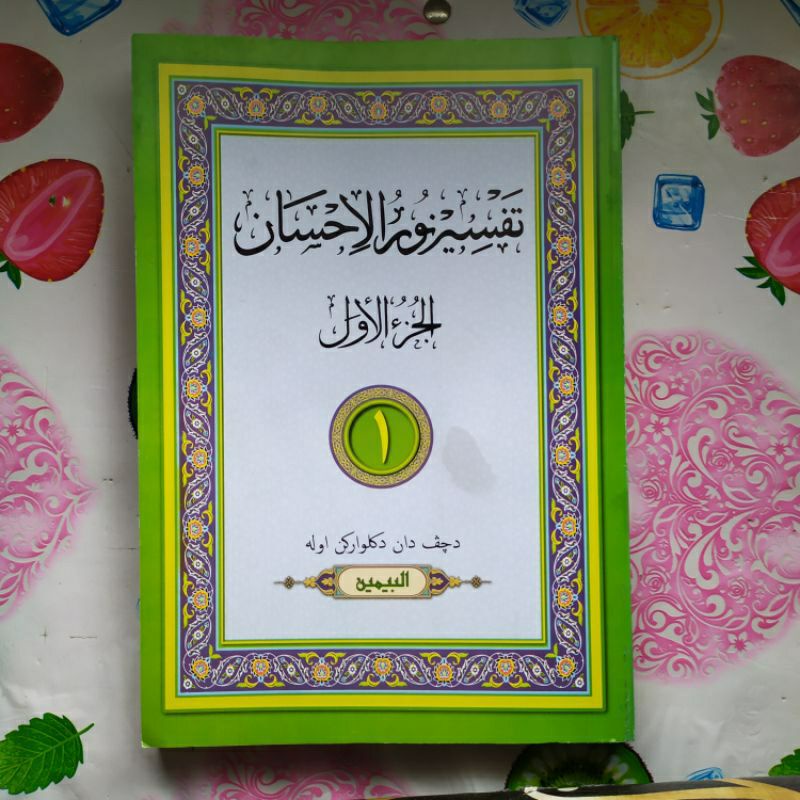 تَفْسِيْر نُوْرُ الْاِحْسَان
الجُزْءُ الأَوَّل
١
دچيتق دان دکلوارکن اوليه